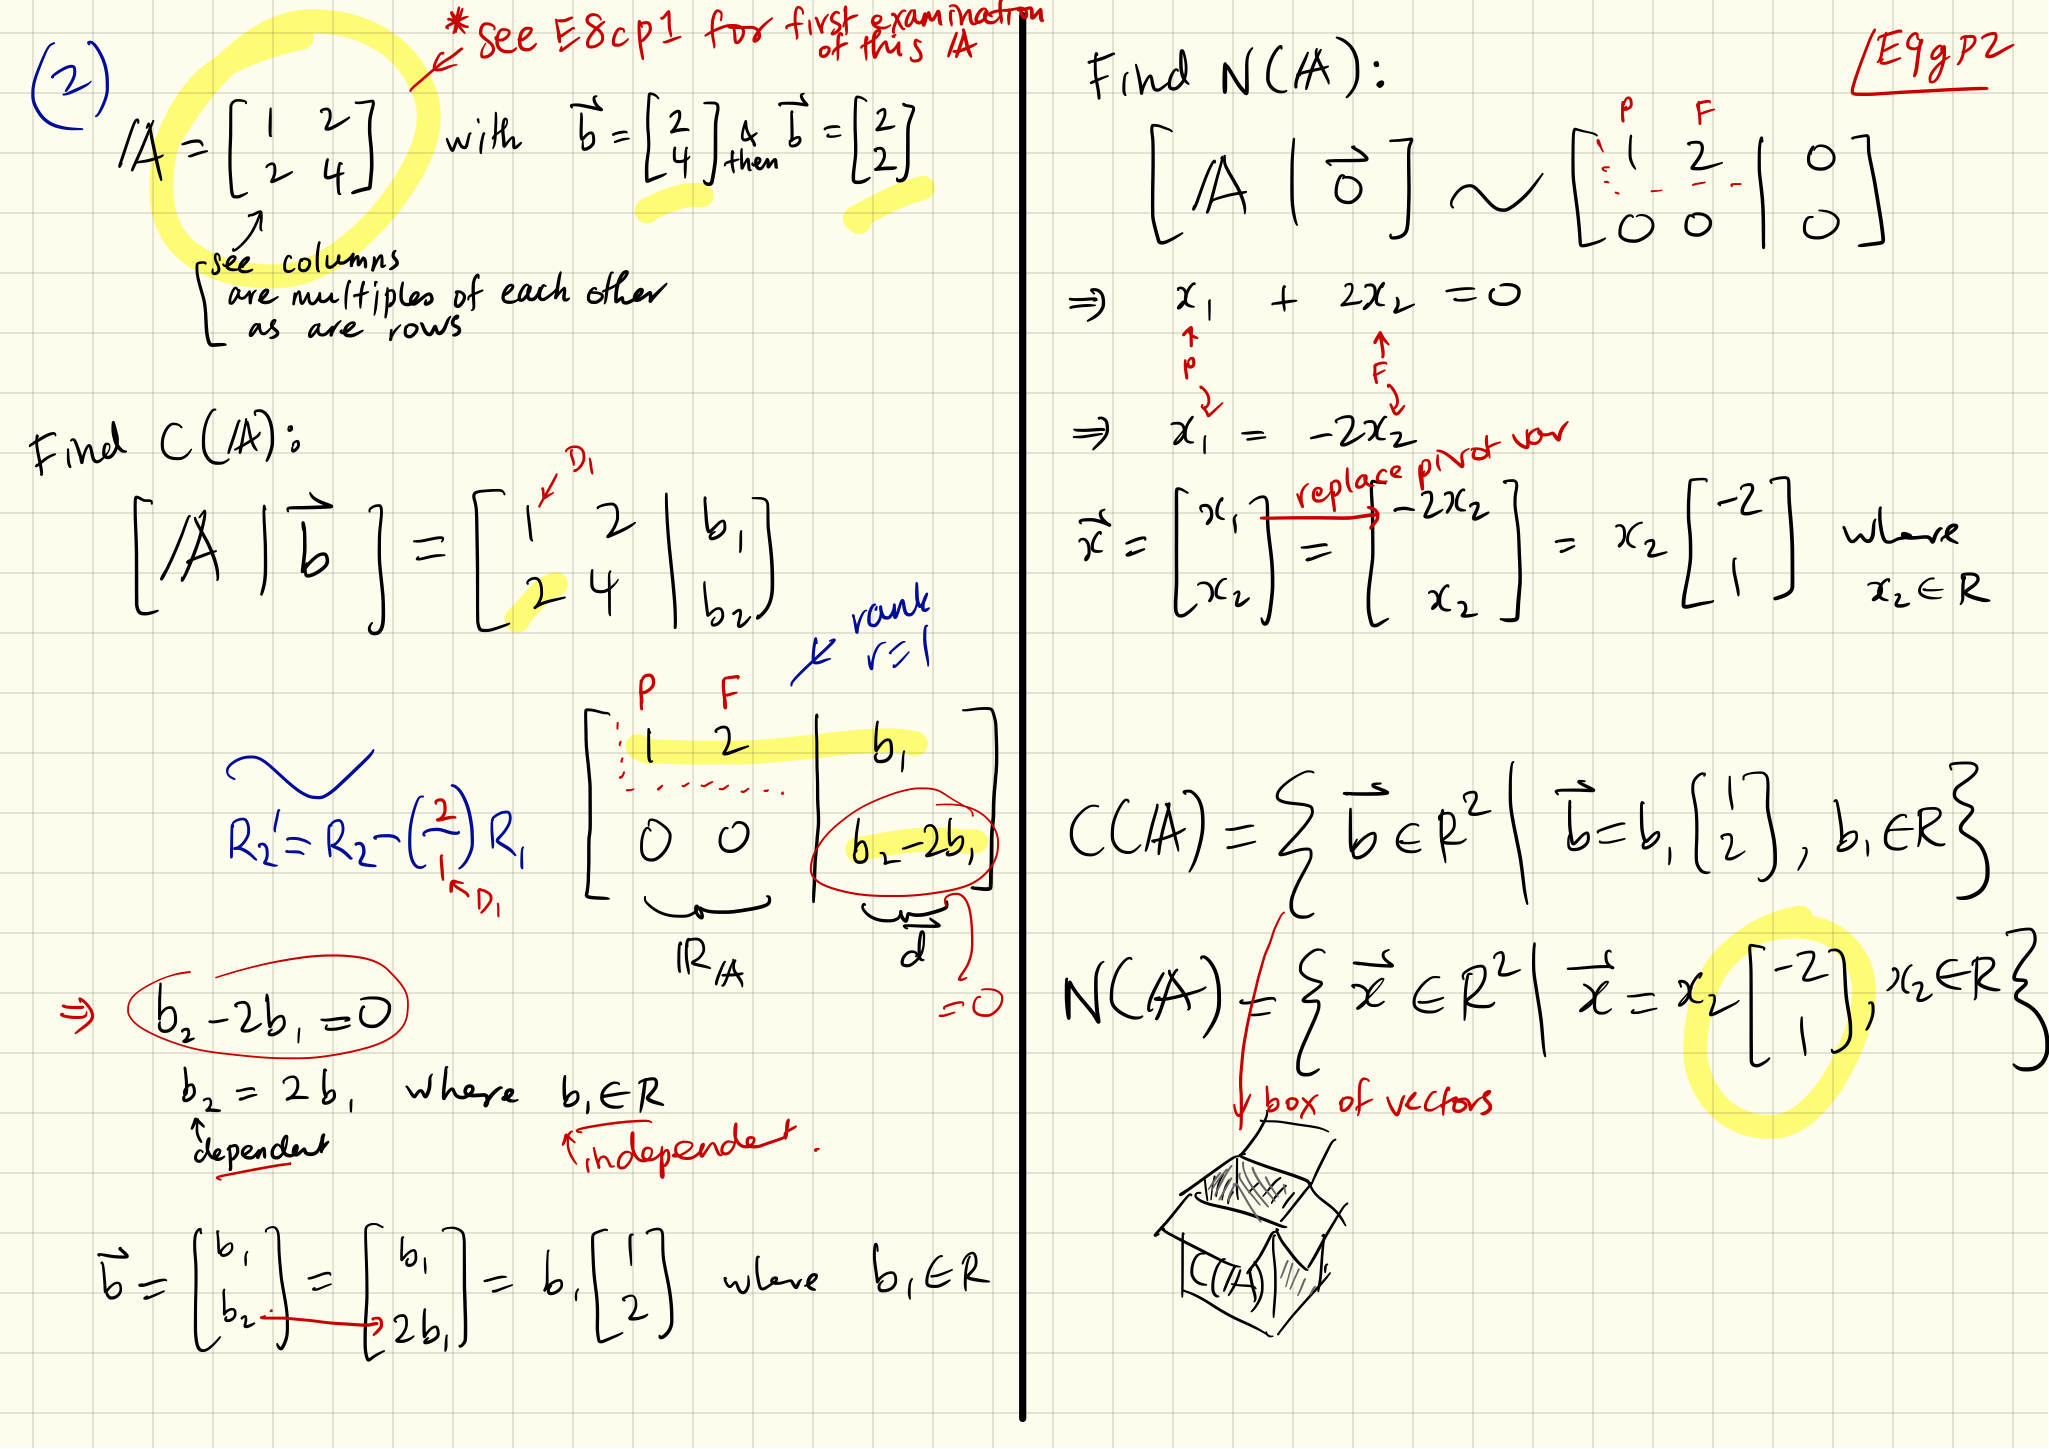 (2)
* see E8cp1 for first examination
of this A
A = [1 2; 2 4] with b⃗ = [2; 4] & then b⃗ = [2; 2]
see columns
are multiples of each other
as are rows
Find C(A):
D₁
[A | b⃗] = [1 2 | b₁; 2 4 | b₂]
rank
r = 1
P F
R₂' = R₂ - (2/1) R₁ ~ [1 2 | b₁; 0 0 | b₂ - 2b₁]
D₁
R_A d⃗
= 0
⇒ b₂ - 2b₁ = 0
b₂ = 2b₁ where b₁ ∈ R
dependent independent.
b⃗ = [b₁; b₂] = [b₁; 2b₁] = b₁ [1; 2] where b₁ ∈ R
E9gP2
Find N(A):
P F
[A | 0⃗] ~ [1 2 | 0; 0 0 | 0]
⇒ x₁ + 2x₂ = 0
P F
⇒ x₁ = -2x₂
replace pivot var
x⃗ = [x₁; x₂] = [-2x₂; x₂] = x₂ [-2; 1] where
x₂ ∈ R
C(A) = { b⃗ ∈ R² | b⃗ = b₁ [1; 2], b₁ ∈ R }
N(A) = { x⃗ ∈ R² | x⃗ = x₂ [-2; 1], x₂ ∈ R }
box of vectors
C(A)